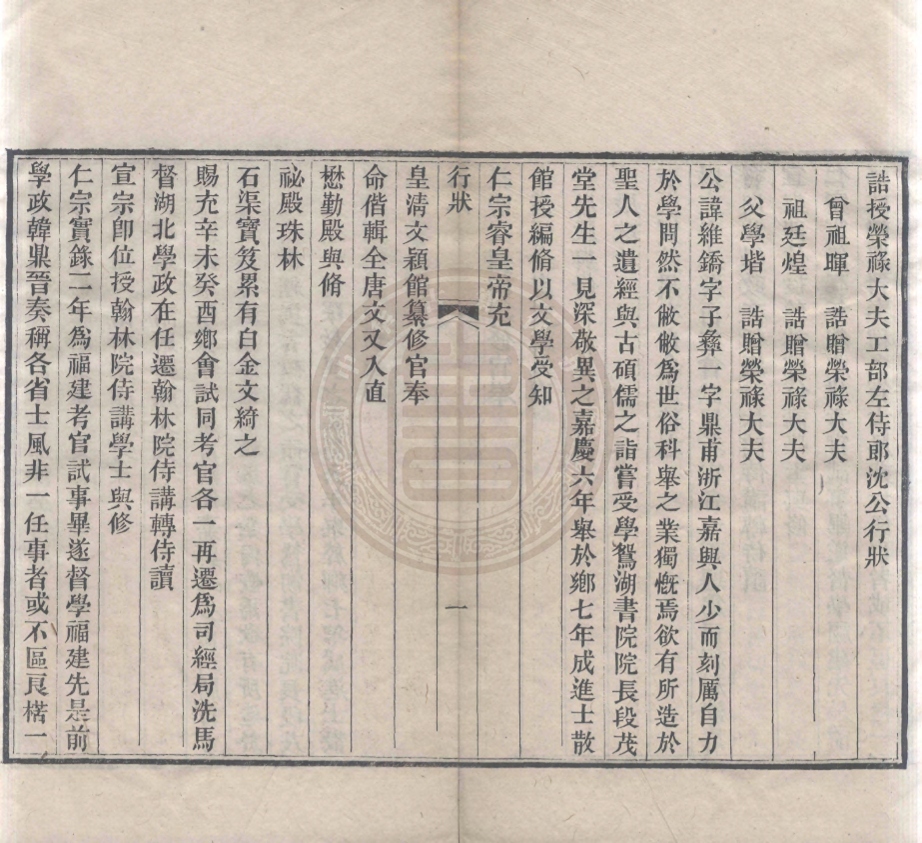 誥授榮祿大夫工部左侍郎沈公行狀
曾祖暉 誥贈榮祿大夫
祖廷煌 誥贈榮祿大夫
父學堦 誥贈榮祿大夫
公諱維鐈字子彝一字鼎甫浙江嘉興人少而刻厲自力
於學問然不敝敝爲世俗科舉之業獨慨焉欲有所造於
聖人之遺經與古碩儒之詣嘗受學鴛湖書院院長段茂
堂先生一見深敬異之嘉慶六年舉於鄉七年成進士散
館授編脩以文學受知
仁宗睿皇帝充
行狀 一
皇淸文穎館纂修官奉
命偕輯全唐文又入直
懋勤殿與脩
祕殿珠林
石渠寶笈累有白金文綺之
賜充辛未癸酉鄉會試同考官各一再遷爲司經局洗馬
督湖北學政在任遷翰林院侍講轉侍讀
宣宗卽位授翰林院侍講學士與修
仁宗實錄二年爲福建考官試事畢遂督學福建先是前
學政韓鼎晉奏稱各省士風非一任事者或不區良楛一